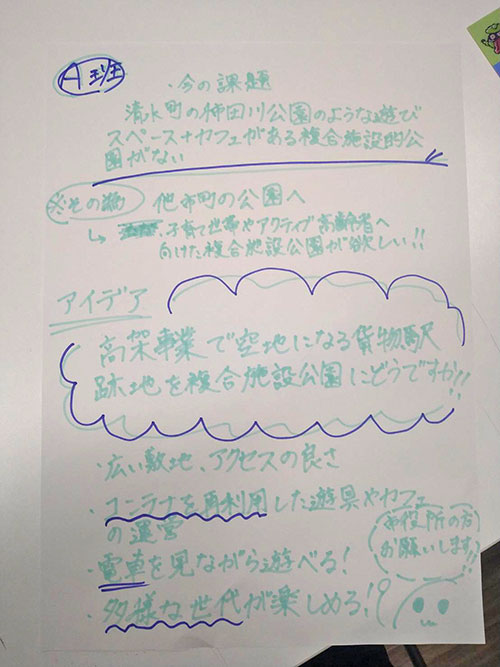 A班
・今の課題
清水町の柿田川公園のような遊び
スペース+カフェがある複合施設的公
園がない
※その為
他市町の公園へ
↳ 子育て世帯やアクティブ高齢者へ
向けた複合施設公園が欲しい!!
アイデア
高架事業で空地になる貨物駅
跡地を複合施設公園にどうですか!!
・広い敷地、アクセスの良さ
・コンテナを再利用した遊具やカフェ
の運営
・電車を見ながら遊べる!
・多様な世代が楽しめる!
市役所の方
お願いします!!